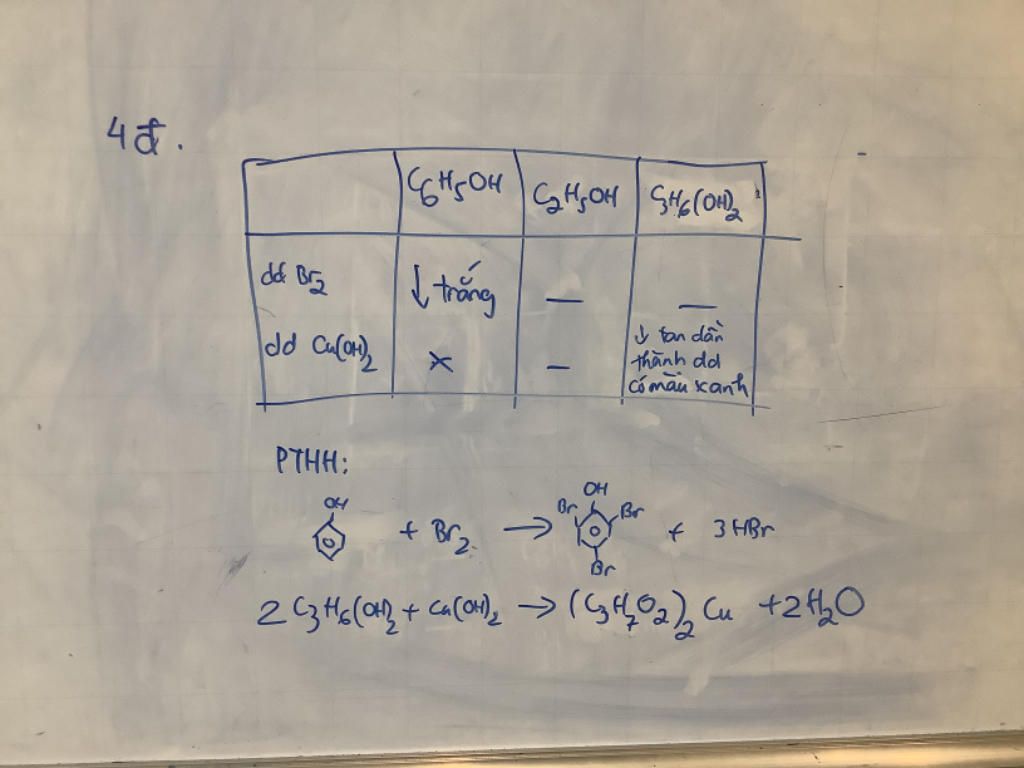 4đ.
C6H5OH C2H5OH C3H6(OH)2
dd Br2 ↓ trắng — —
dd Cu(OH)2 × — ↓ tan dần
thành dd
có màu xanh
PTHH:
OH + Br2 → OH Br Br Br + 3HBr
2 C3H6(OH)2 + Cu(OH)2 → (C3H7O2)2 Cu + 2H2O